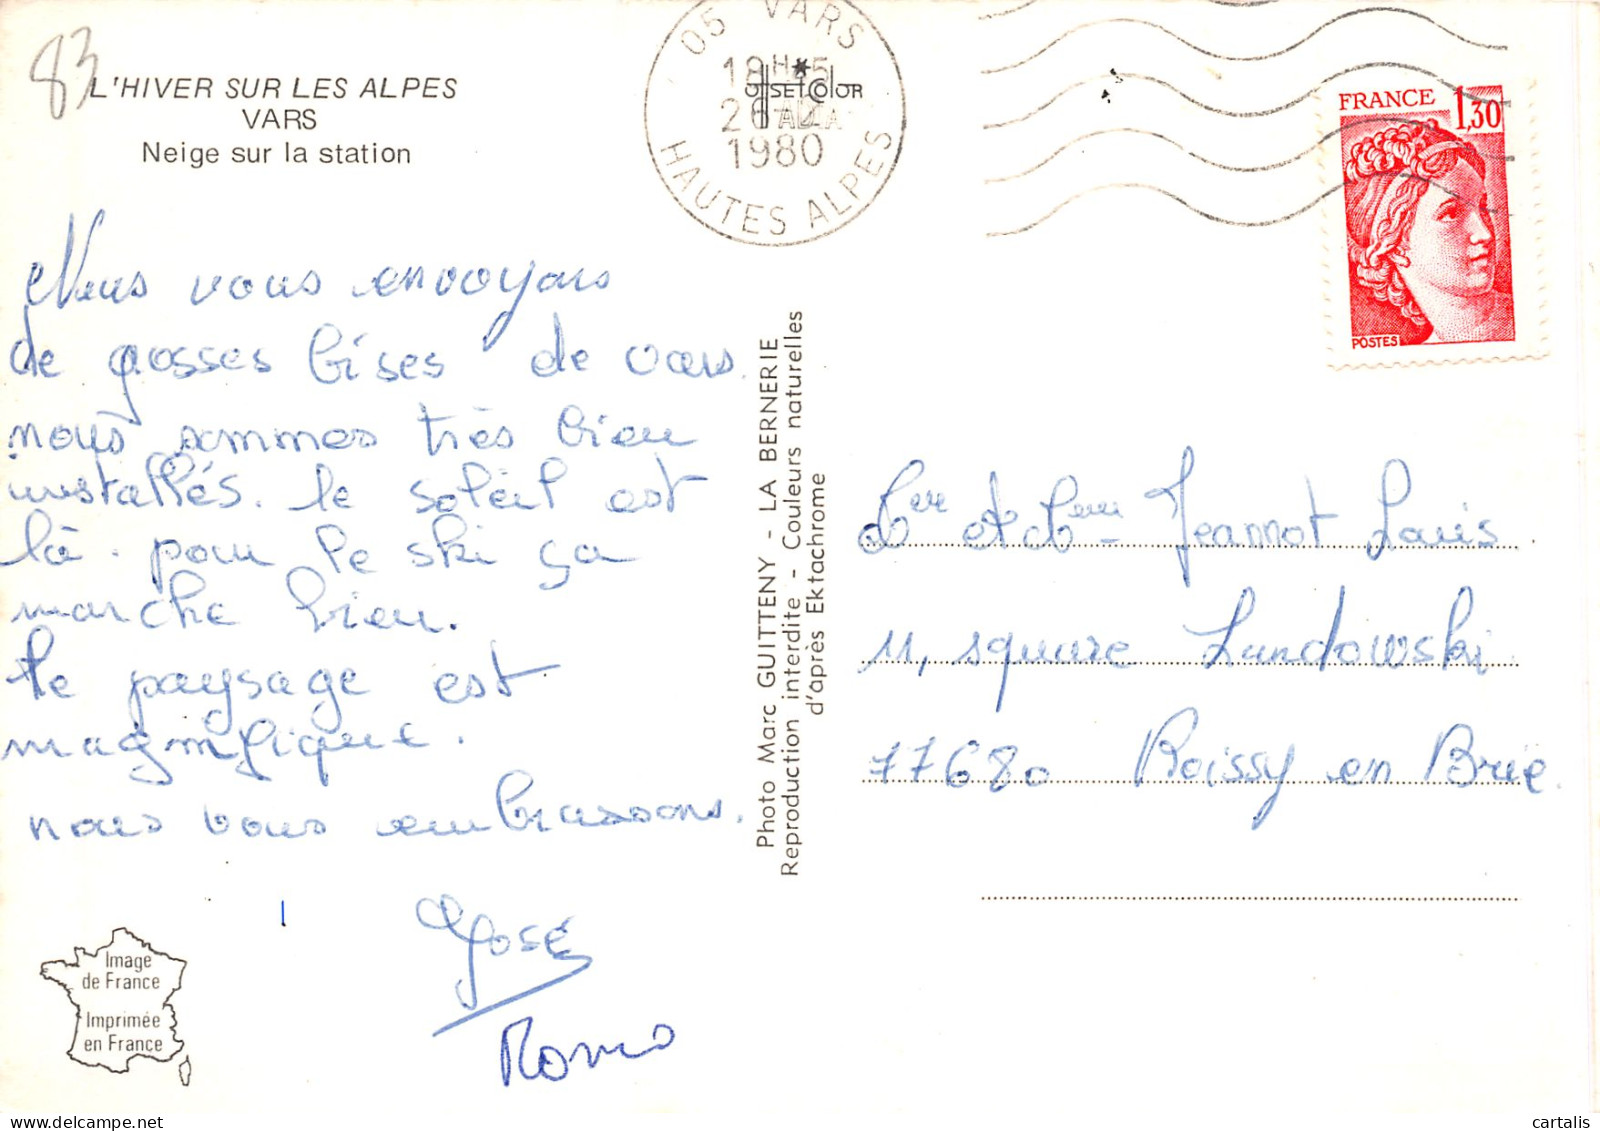 83
L'HIVER SUR LES ALPES
VARS
Neige sur la station
05 VARS
18H*5
26
1980
HAUTES ALPES
OFFSETCOLOR
FRANCE 1,30
POSTES
Nous vous envoyons
de grosses bises de Vars.
nous sommes très bien
installés. le soleil est
là. pour le ski ça
marche bien.
le paysage est
magnifique.
nous vous embrassons.
José
Image
de France
Imprimée
en France
Photo Marc GUITTENY - LA BERNERIE
Reproduction interdite - Couleurs naturelles
d'après Ektachrome
Jeannot Louis
11, square Landowski
77680 Roissy en Brie.
cartalis.com